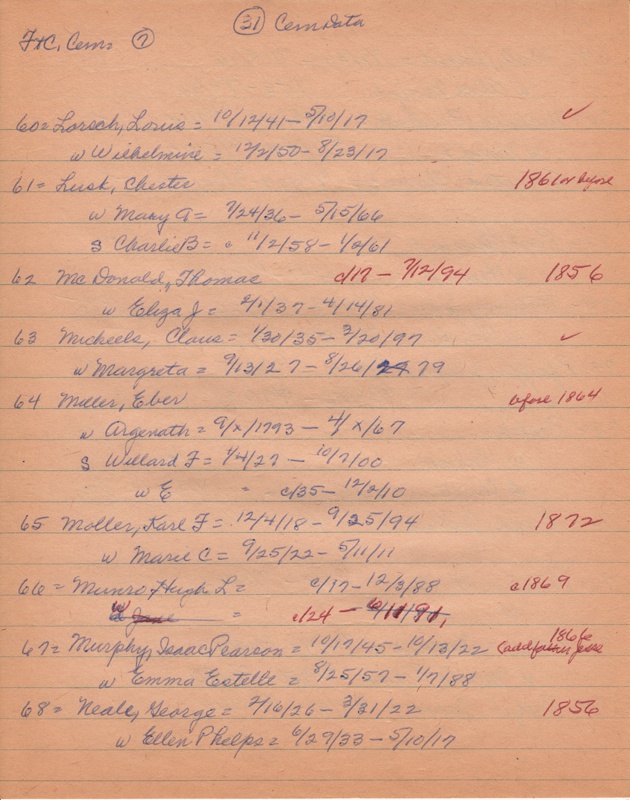 31 Cem Data
F+C, Cems 7
60 = Lorsch, Louis = 10/12/41 – 5/10/17 ✓
w Wilhelmine = 12/2/50 – 8/23/17
61 = Lusk, Chester 1861 or before
w Mary A = 7/24/36 – 5/15/66
S Charlie B = 11/2/58 – 1/2/61
62 McDonald, Thomas c/17 – 7/12/94 1856
w Eliza J = 2/1/37 – 4/14/81
63 Micheels, Claus = 1/30/35 – 3/20/97 ✓
w Margreta = 9/13/27 – 8/26/79
64 Miller, Eber bfore 1864
w Argenath = 9/x/1793 – 4/x/67
S Willard F = 1/4/27 – 10/7/00
w E = c/35 – 12/2/10
65 Moller, Karl F = 12/4/18 – 9/25/94 1872
w Marie C = 9/25/22 – 5/11/11
66 = Munro, Hugh L = c/17 – 12/3/88 c1869
w Jane = c/24 – 6/11/91
67 = Murphy, Isaac Pearson = 10/17/45 – 10/13/22 1866
w Emma Estelle = 8/25/57 – 1/7/88
68 = Neale, George = 2/16/26 – 3/31/22 1856
w Ellen Phelps = 6/29/33 – 5/10/17